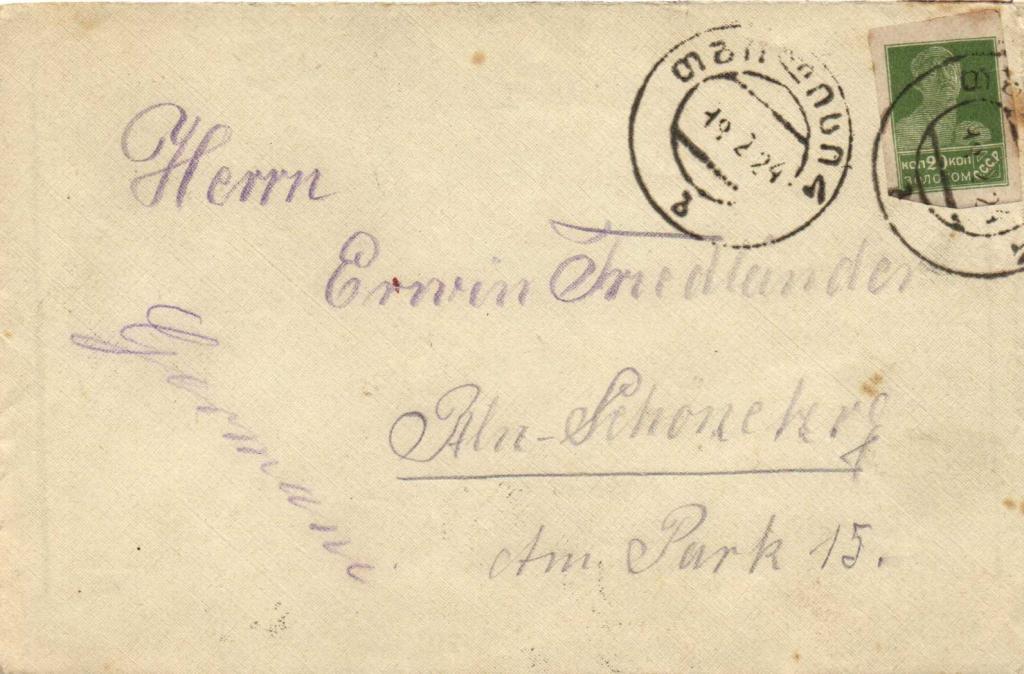 19.2.24
КОП 20 КОП
ЗОЛОТОМ
СССР
Herrn
Erwin Friedländer
Bln-Schöneberg
Am Park 15.
Germani